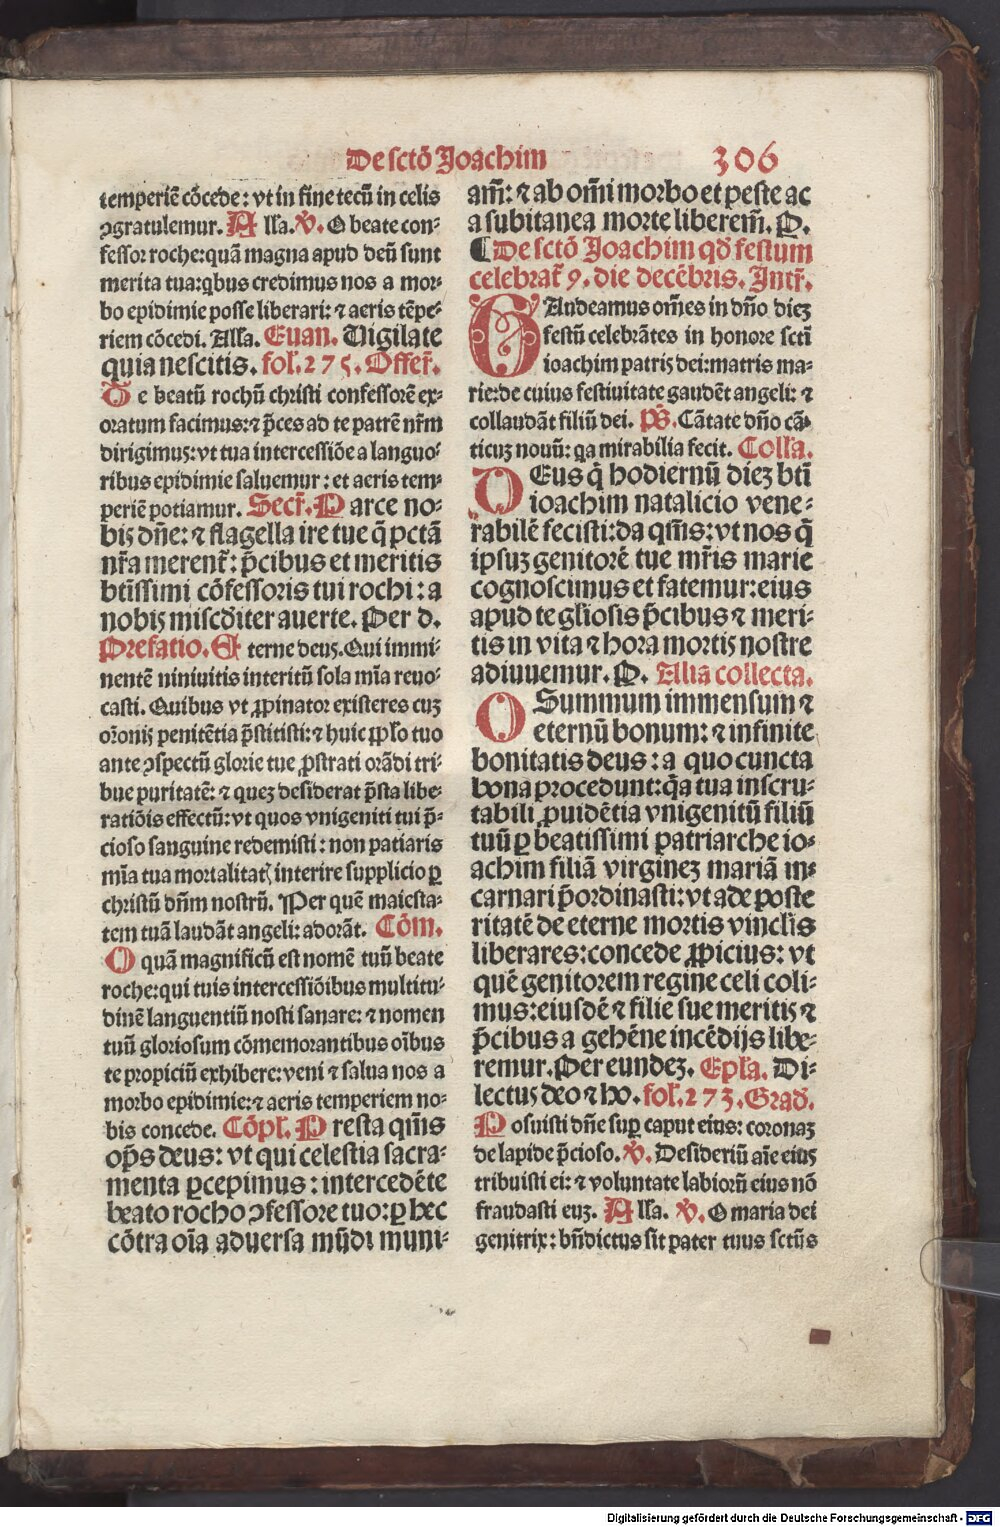 De sctō Joachim 306
temperiē cōcede: vt in fine tecū in celis
ꝯgratulemur. Alla. ℣. O beate con-
fessor roche: quā magna apud deū sunt
merita tua: qbus credimus nos a mor-
bo epidimie posse liberari: ⁊ aeris tēpe-
riem cōcedi. Alla. Euan. Vigilate
quia nescitis. fol. 275. Offer̄.
Te beatū rochū christi confessorē ex-
oratum facimus: ⁊ p̄ces ad te patrē nr̄m
dirigimus: vt tua intercessiōe a languo-
ribus epidimie saluemur: et aeris tem-
periē potiamur. Secr̄. Parce no-
bis dn̄e: ⁊ flagella ire tue q̄ pctā
nr̄a merent̄: p̄cibus et meritis
btīssimi cōfessoris tui rochi: a
nobis miscd̄iter auerte. Per d.
Prefatio. Eterne deus. Qui immi-
nentē niniuitis interitū sola mīa reuo-
casti. Quibus vt ꝓpinator existeres cuz
or̄onis penitētia p̄stitisti: ⁊ huic ꝓplo tuo
ante ꝯspectū glorie tue ꝓstrati orādi tri-
bue puritatē: ⁊ quez desiderat p̄sta libe-
ratiōis effectū: vt quos vnigeniti tui p̄-
cioso sanguine redemisti: non patiaris
mīa tua mortalitatꝭ interire supplicio ꝑ
christū dn̄m nostrū. Per quē maiesta-
tem tuā laudāt angeli: adorāt. Cōm.
O quā magnificū est nomē tuū beate
roche: qui tuis intercessiōibus multitu-
dinē languentiū nosti sanare: ⁊ nomen
tuū gloriosum cōmemorantibus oībus
te propiciū exhibere: veni ⁊ salua nos a
morbo epidimie: ⁊ aeris temperiem no-
bis concede. Cōpl. Presta qm̄s
opˢ deus: vt qui celestia sacra-
menta ꝑcepimus: intercedēte
beato rocho ꝯfessore tuo: ꝑ hec
cōtra oīa aduersa mūdi muni-
am̄: ⁊ ab om̄i morbo et peste ac
a subitanea morte liberem̄. P.
¶ De sctō Joachim qd̄ festum
celebrat̄ 9. die decēbris. Intr̄.
GAudeamus om̄es in dn̄o diez
festū celebrātes in honore scti
ioachim patris dei: matris ma-
rie: de cuius festiuitate gaudēt angeli: ⁊
collaudāt filiū dei. p̄s. Cātate dn̄o cā-
ticuz nouū: qa mirabilia fecit. Colla.
DEus q̄ hodiernū diez btī
ioachim natalicio vene-
rabilē fecisti: da qm̄s: vt nos q̄
ipsuz genitorē tue mr̄is marie
cognoscimus et fatemur: eius
apud te gliosis p̄cibus ⁊ meri-
tis in vita ⁊ hora mortis nostre
adiuuemur. P. Alia collecta.
O Summum immensum ⁊
eternū bonum: ⁊ infinite
bonitatis deus: a quo cuncta
bona procedunt: q̄a tua inscru-
tabili ꝓuidētia vnigenitū filiū
tuū ꝑ beatissimi patriarche io-
achim filiā virginez mariā in-
carnari p̄ordinasti: vt ade poste
ritatē de eterne mortis vinclis
liberares: concede ꝓpicius: vt
quē genitorem regine celi coli-
mus: eiusdē ⁊ filie sue meritis ⁊
p̄cibus a gehēne incēdijs libe-
remur. Per eundez. Epla. Di-
lectus deo ⁊ ho. fol. 273. Grad.
Posuisti dn̄e suꝑ caput eius: coronaz
de lapide p̄cioso. ℣. Desideriū aīe eius
tribuisti ei: ⁊ voluntate labiorū eius nō
fraudasti euz. Alla. ℣. O maria dei
genitrix: bn̄dictus sit pater tuus sctūs
Digitalisierung gefördert durch die Deutsche Forschungsgemeinschaft - DFG